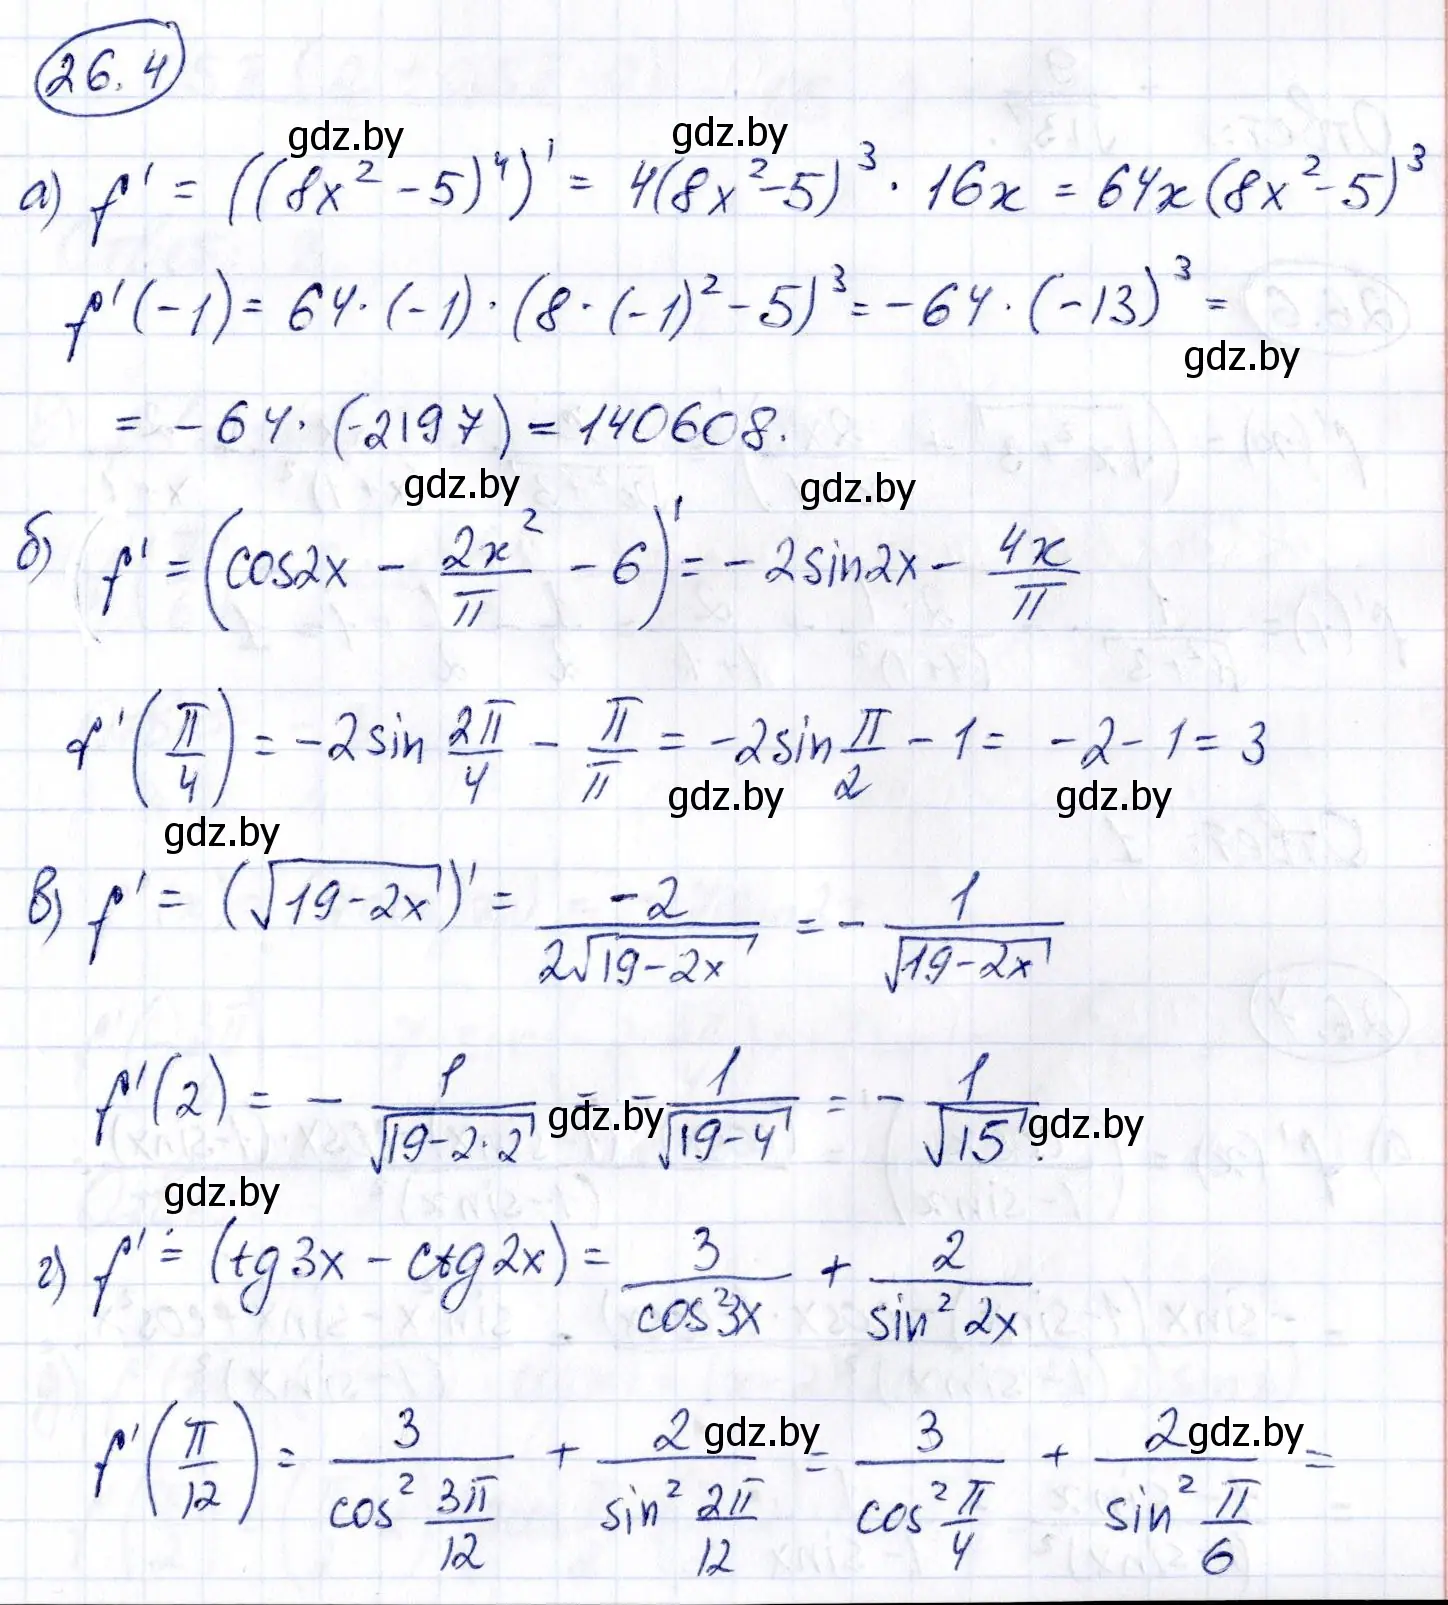 26.4
gdz.by gdz.by
а) f' = ((8x² - 5)⁴)' = 4(8x² - 5)³ · 16x = 64x(8x² - 5)³
f'(-1) = 64 · (-1) · (8 · (-1)² - 5)³ = -64 · (-13)³ =
gdz.by
= -64 · (-2197) = 140608.
gdz.by gdz.by
б) f' = (cos2x - 2x²/π - 6)' = -2sin2x - 4x/π
f'(π/4) = -2sin 2π/4 - π/π = -2sin π/2 - 1 = -2 - 1 = 3
gdz.by gdz.by gdz.by
в) f' = (√(19-2x))' = -2/(2√(19-2x)) = - 1/√(19-2x)
f'(2) = - 1/√(19-2·2) = - 1/√(19-4) = - 1/√15.
gdz.by gdz.by
gdz.by
г) f' = (tg3x - ctg2x) = 3/cos²3x + 2/sin²2x
f'(π/12) = 3/cos² 3π/12 + 2/sin² 2π/12 = 3/cos² π/4 + 2/sin² π/6 =
gdz.by gdz.by